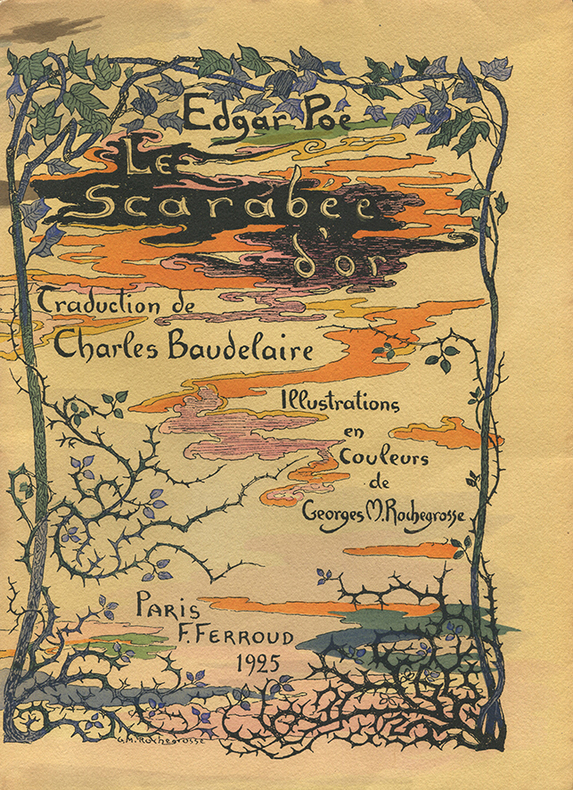 Edgar Poe
Le
Scarabée
d'or
Traduction de
Charles Baudelaire
Illustrations
en
Couleurs
de
Georges M. Rochegrosse
Paris
F. Ferroud
1925
G.M. Rochegrosse